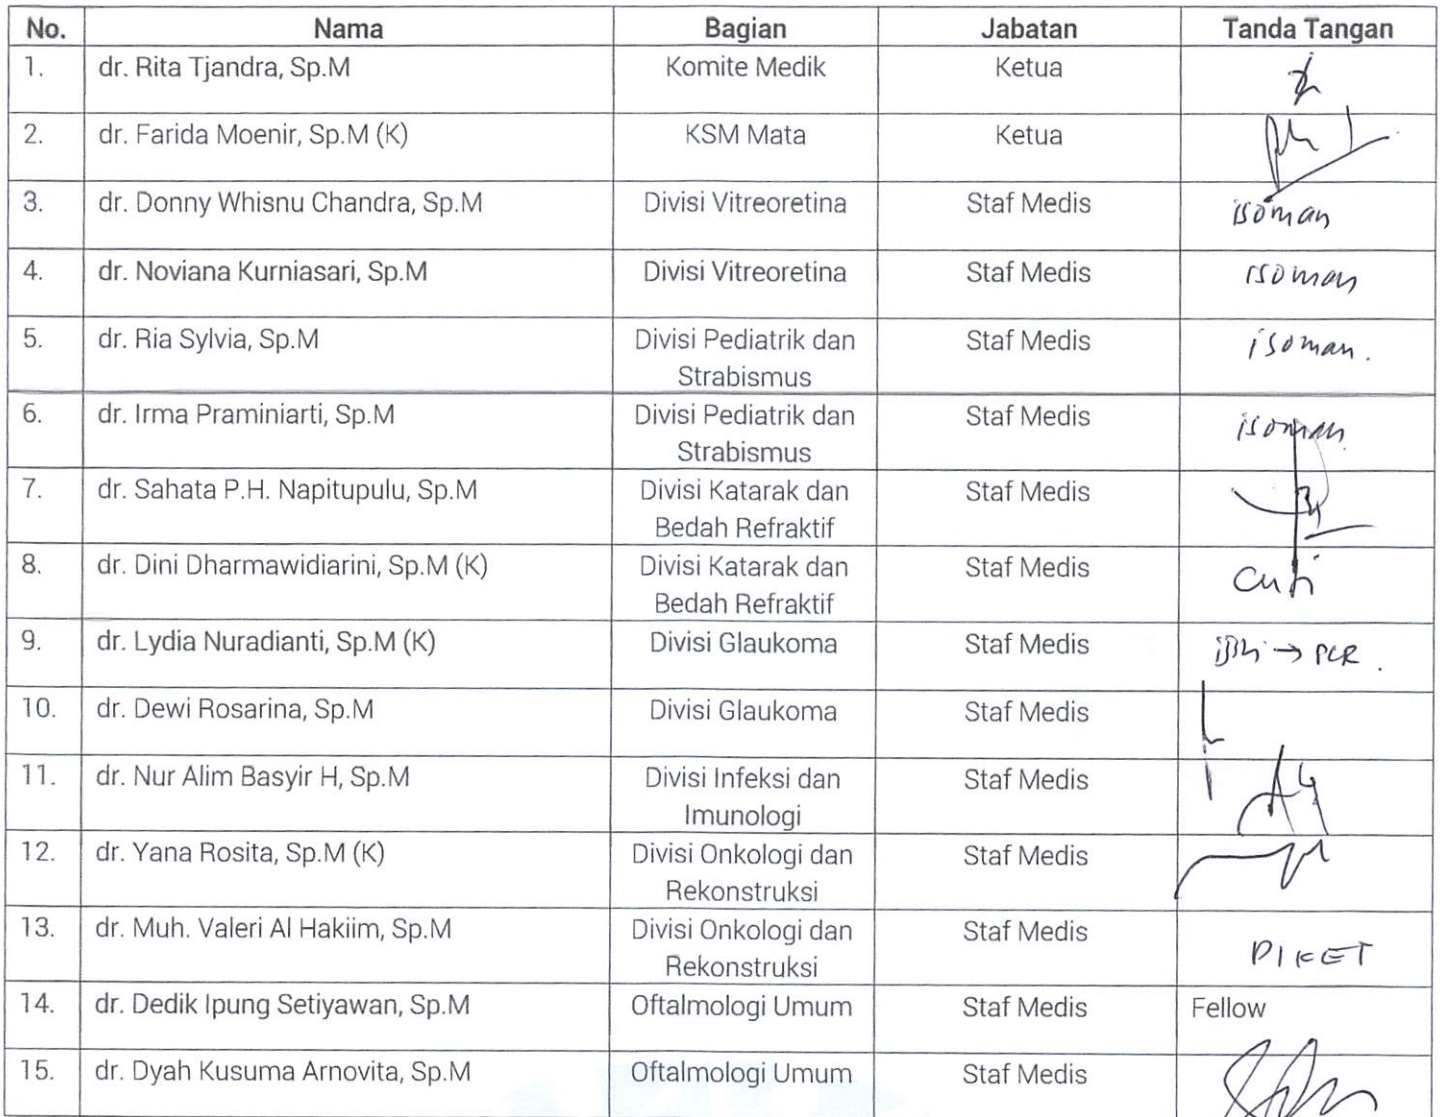 No. Nama Bagian Jabatan Tanda Tangan
1. dr. Rita Tjandra, Sp.M Komite Medik Ketua
2. dr. Farida Moenir, Sp.M (K) KSM Mata Ketua
3. dr. Donny Whisnu Chandra, Sp.M Divisi Vitreoretina Staf Medis isoman
4. dr. Noviana Kurniasari, Sp.M Divisi Vitreoretina Staf Medis isoman
5. dr. Ria Sylvia, Sp.M Divisi Pediatrik dan Staf Medis isoman.
Strabismus
6. dr. Irma Praminiarti, Sp.M Divisi Pediatrik dan Staf Medis isoman
Strabismus
7. dr. Sahata P.H. Napitupulu, Sp.M Divisi Katarak dan Staf Medis
Bedah Refraktif
8. dr. Dini Dharmawidiarini, Sp.M (K) Divisi Katarak dan Staf Medis Cuti
Bedah Refraktif
9. dr. Lydia Nuradianti, Sp.M (K) Divisi Glaukoma Staf Medis → PCR.
10. dr. Dewi Rosarina, Sp.M Divisi Glaukoma Staf Medis
11. dr. Nur Alim Basyir H, Sp.M Divisi Infeksi dan Staf Medis
Imunologi
12. dr. Yana Rosita, Sp.M (K) Divisi Onkologi dan Staf Medis
Rekonstruksi
13. dr. Muh. Valeri Al Hakiim, Sp.M Divisi Onkologi dan Staf Medis PIKET
Rekonstruksi
14. dr. Dedik Ipung Setiyawan, Sp.M Oftalmologi Umum Staf Medis Fellow
15. dr. Dyah Kusuma Arnovita, Sp.M Oftalmologi Umum Staf Medis